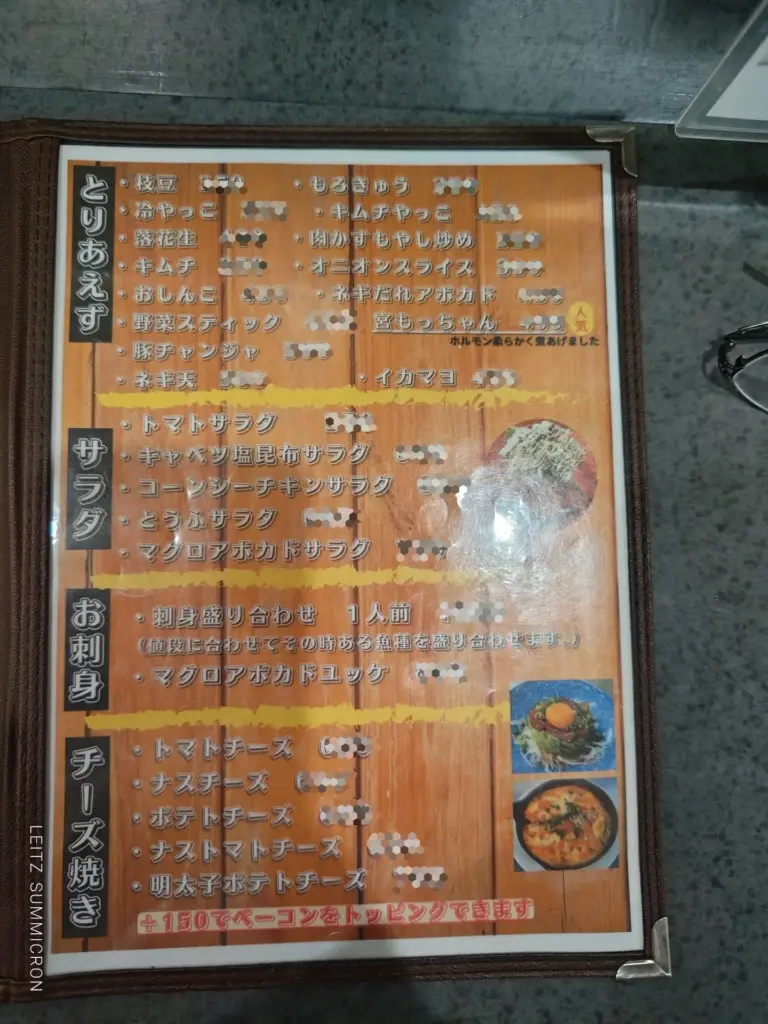 とりあえず
・枝豆
・もろきゅう
・冷やっこ
・キムチやっこ
・落花生
・肉かすもやし炒め
・キムチ
・オニオンスライス
・おしんこ
・ネギだれアボカド
・野菜スティック
宮もっちゃん
人気
ホルモン柔らかく煮あげました
・豚チャンジャ
・ネギ天
・イカマヨ
サラダ
・トマトサラダ
・キャベツ塩昆布サラダ
・コーンシーチキンサラダ
・とうふサラダ
・マグロアボカドサラダ
お刺身
・刺身盛り合わせ 1人前
(値段に合わせてその時ある魚種を盛り合わせます。)
・マグロアボカドユッケ
チーズ焼き
・トマトチーズ
・ナスチーズ
・ポテトチーズ
・ナストマトチーズ
・明太子ポテトチーズ
+150でベーコンをトッピングできます
LEITZ SUMMICRON